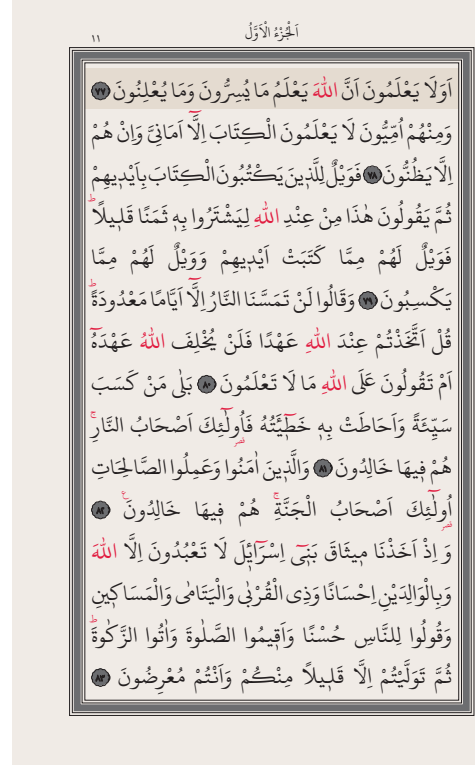 اَلْجُزْءُ الْاَوَّلُ
١١
اَوَلَا يَعْلَمُونَ اَنَّ اللّٰهَ يَعْلَمُ مَا يُسِرُّونَ وَمَا يُعْلِنُونَ ٧٧
وَمِنْهُمْ اُمِّيُّونَ لَا يَعْلَمُونَ الْكِتَابَ اِلَّٓا اَمَانِيَّ وَاِنْ هُمْ
اِلَّا يَظُنُّونَ ٧٨ فَوَيْلٌ لِلَّذِينَ يَكْتُبُونَ الْكِتَابَ بِاَيْدِيهِمْ
ثُمَّ يَقُولُونَ هٰذَا مِنْ عِنْدِ اللّٰهِ لِيَشْتَرُوا بِهِ ثَمَنًا قَلِيلًاۜ
فَوَيْلٌ لَهُمْ مِمَّا كَتَبَتْ اَيْدِيهِمْ وَوَيْلٌ لَهُمْ مِمَّا
يَكْسِبُونَ ٧٩ وَقَالُوا لَنْ تَمَسَّنَا النَّارُ اِلَّٓا اَيَّامًا مَعْدُودَةًۜ
قُلْ اَتَّخَذْتُمْ عِنْدَ اللّٰهِ عَهْدًا فَلَنْ يُخْلِفَ اللّٰهُ عَهْدَهُٓ
اَمْ تَقُولُونَ عَلَى اللّٰهِ مَا لَا تَعْلَمُونَ ٨٠ بَلٰى مَنْ كَسَبَ
سَيِّئَةً وَاَحَاطَتْ بِهِ خَطِٓيـَٔتُهُ فَاُولٰٓئِكَ اَصْحَابُ النَّارِۚ
هُمْ فِيهَا خَالِدُونَ ٨١ وَالَّذِينَ اٰمَنُوا وَعَمِلُوا الصَّالِحَاتِ
اُولٰٓئِكَ اَصْحَابُ الْجَنَّةِۚ هُمْ فِيهَا خَالِدُونَ۟ ٨٢
وَاِذْ اَخَذْنَا مِيثَاقَ بَنِٓي اِسْرَٓائِلَ لَا تَعْبُدُونَ اِلَّا اللّٰهَ
وَبِالْوَالِدَيْنِ اِحْسَانًا وَذِي الْقُرْبٰى وَالْيَتَامٰى وَالْمَسَاكِينِ
وَقُولُوا لِلنَّاسِ حُسْنًا وَاَقِيمُوا الصَّلٰوةَ وَاٰتُوا الزَّكٰوةَۜ
ثُمَّ تَوَلَّيْتُمْ اِلَّا قَلِيلًا مِنْكُمْ وَاَنْتُمْ مُعْرِضُونَ ٨٣